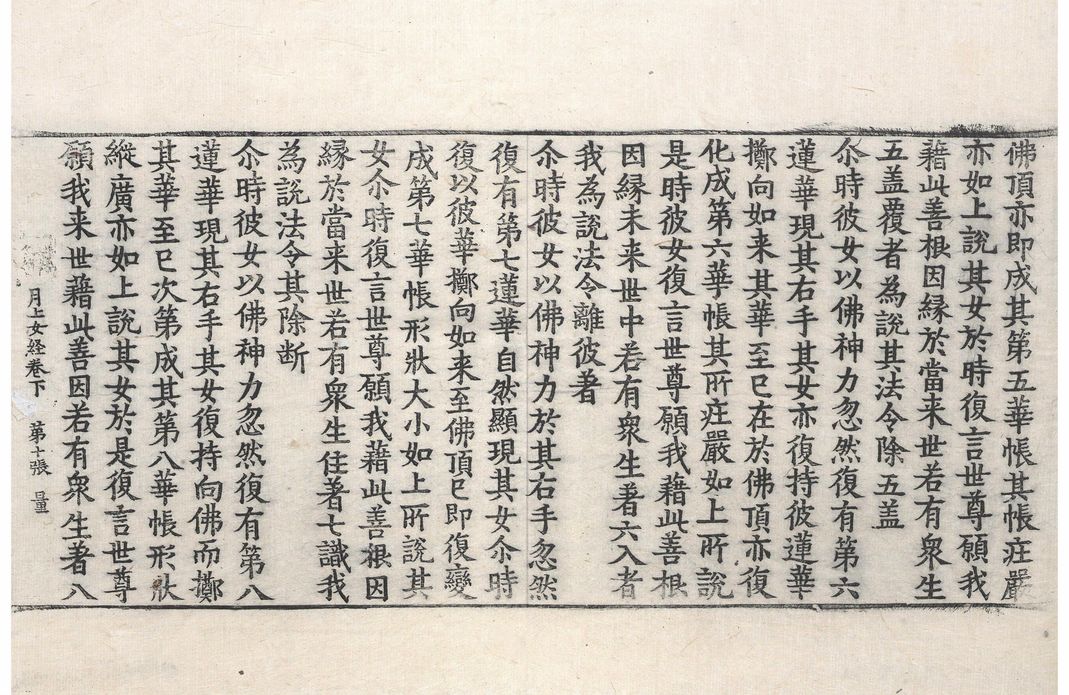 佛頂亦即成其第五華帳其帳庄嚴
亦如上說其女於時復言世尊願我
藉此善根因縁於當来世若有衆生
五盖覆者為說其法令除五盖
尒時彼女以佛神力忽然復有第六
蓮華現其右手其女亦復持彼蓮華
擲向如来其華至已在於佛頂亦復
化成第六華帳其所庄嚴如上所說
是時彼女復言世尊願我藉此善根
因縁未来世中若有衆生著六入者
我為說法令離彼著
尒時彼女以佛神力於其右手忽然
復有第七蓮華自然顯現其女尒時
復以彼華擲向如来至佛頂已即復變
成第七華帳形狀大小如上所說其
女尒時復言世尊願我藉此善根因
縁於當来世若有衆生住著七識我
為說法令其除断
尒時彼女以佛神力忽然復有第八
蓮華現其右手其女復持向佛而擲
其華至已次第成其第八華帳形狀
縱廣亦如上說其女於是復言世尊
願我来世藉此善因若有衆生著八
月上女経巻下 第十張 量